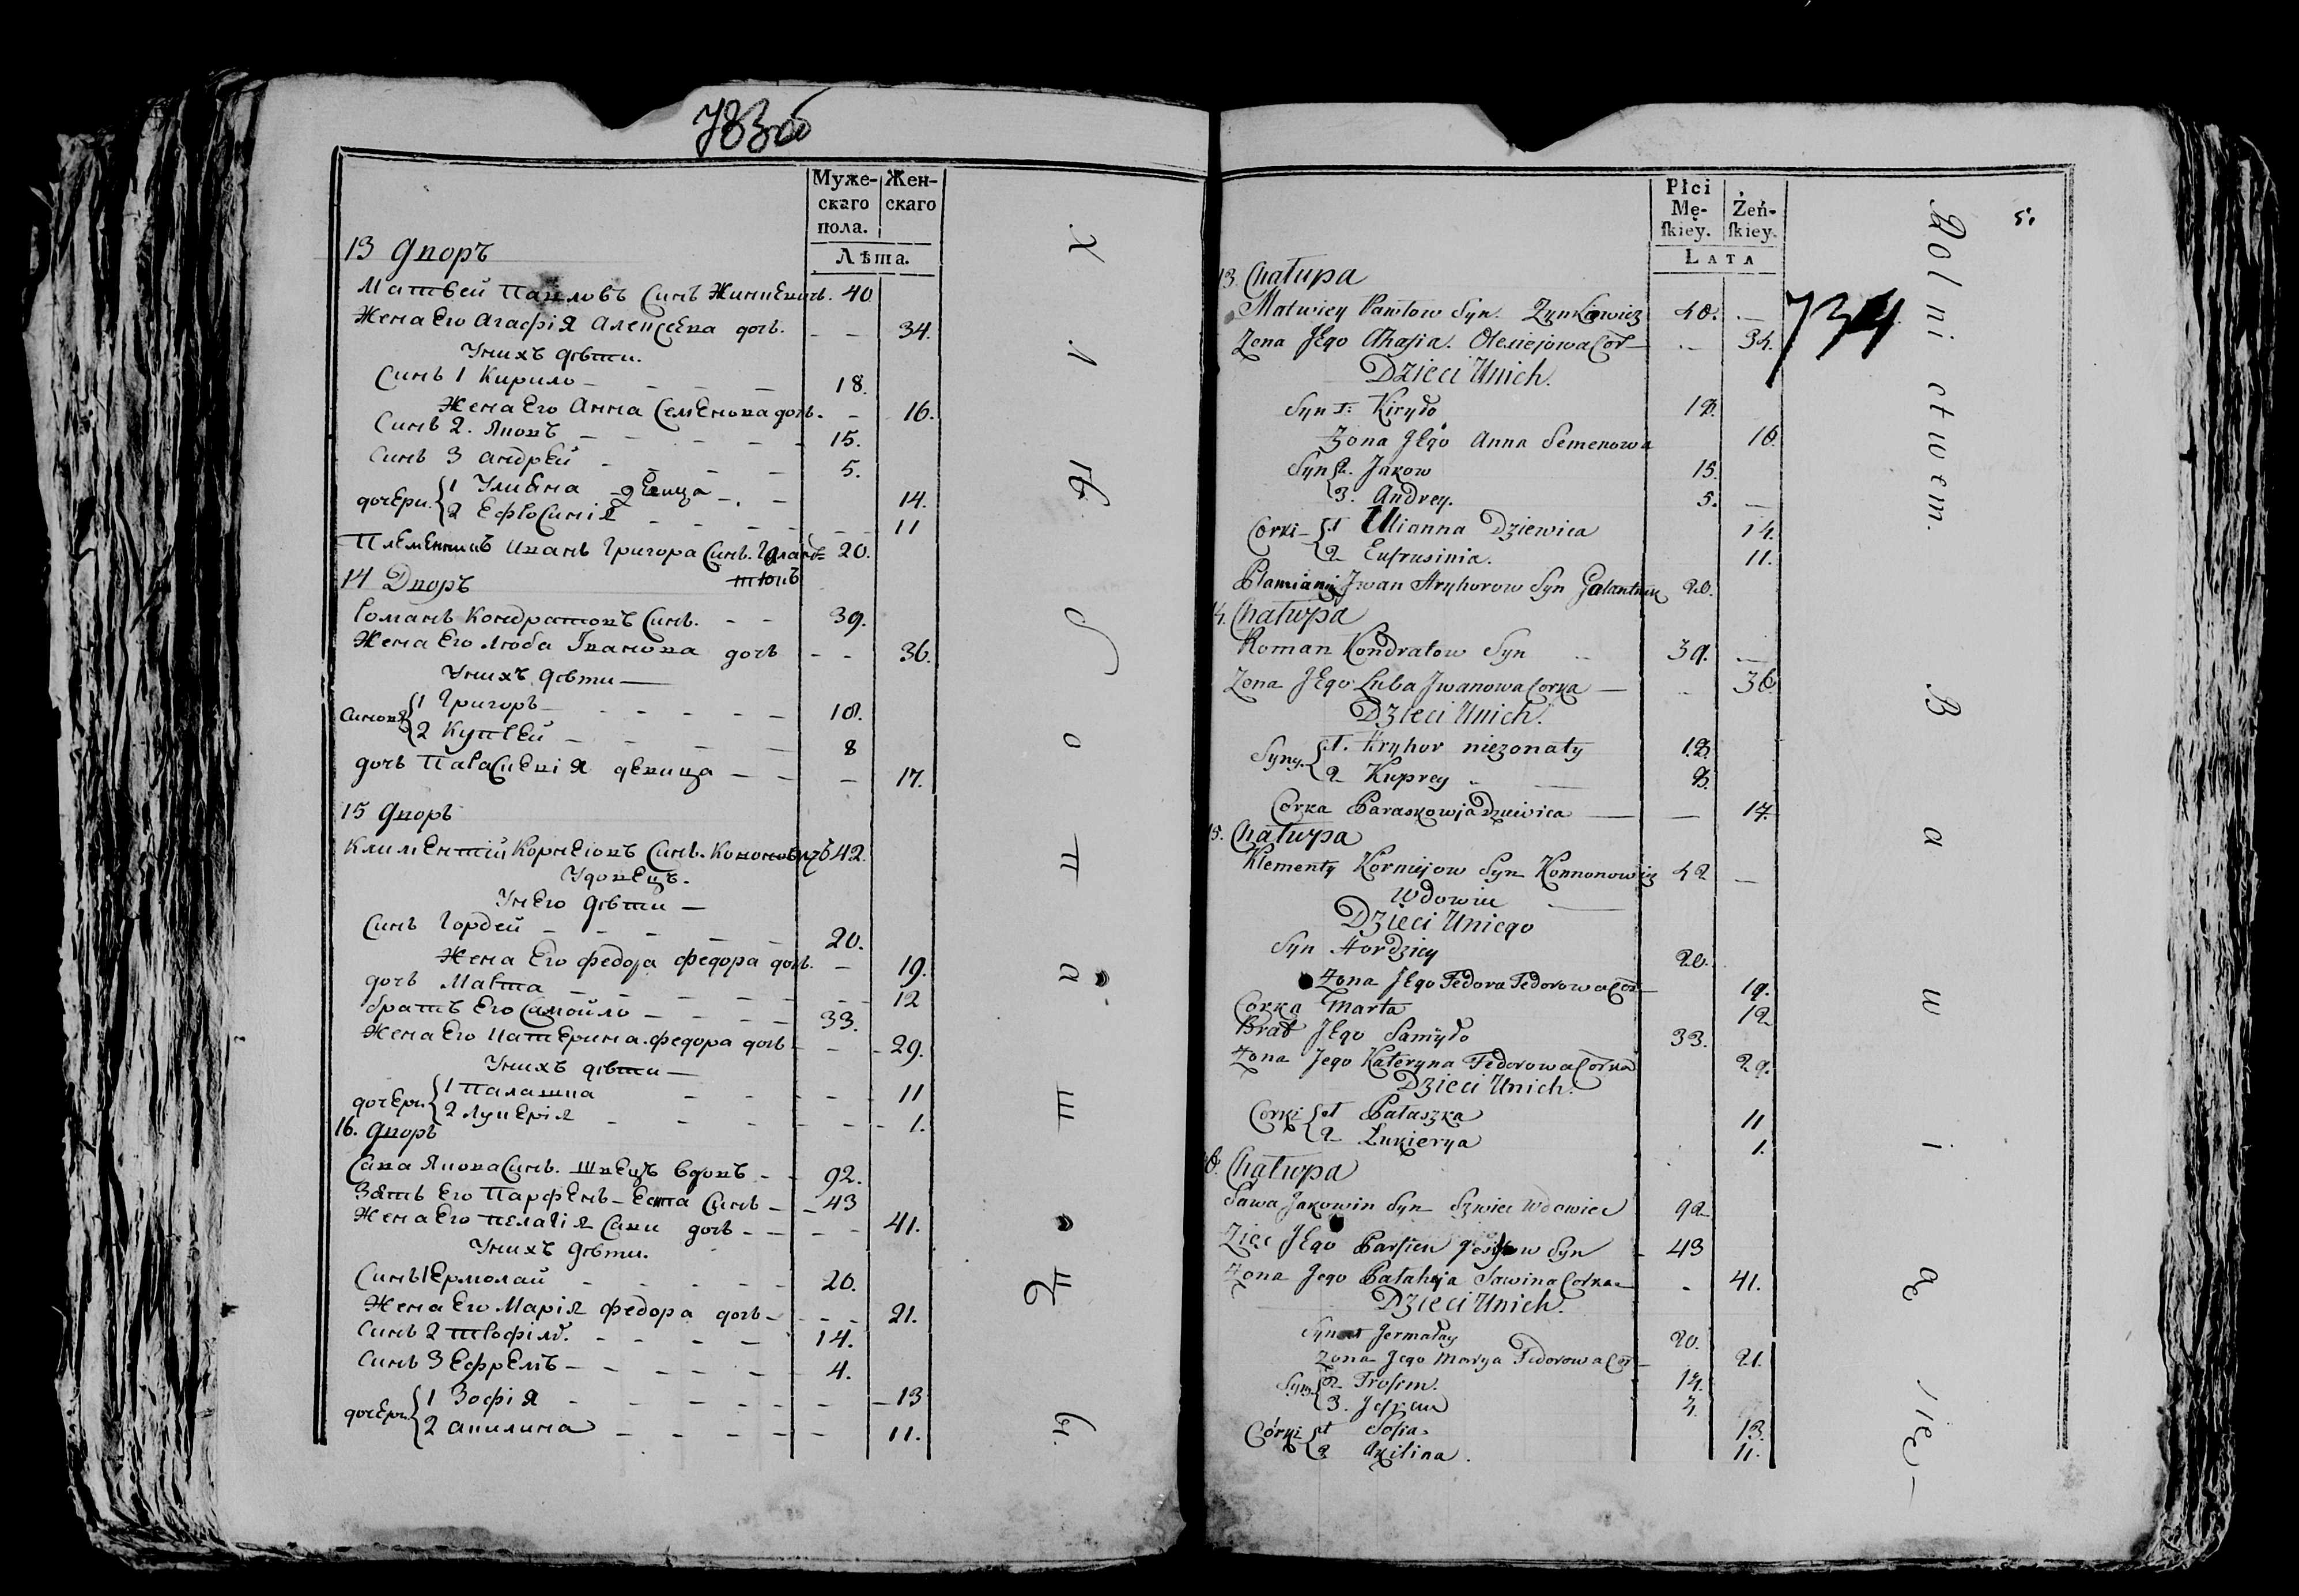 733об
Муже-
скаго
пола.
Жен-
скаго
Лѣта.
13 Дворъ
Матвей Павловъ Синъ Жинкевичъ. 40
Жена Его Агафія Алексеева дочъ. - - 34.
Унихъ дѣти.
Синъ 1 Кирило - - - - 18.
Жена Его Анна Семенова дочъ. - 16.
Синъ 2. Яковъ - - - - 15.
Синъ 3 Андрей - - - - 5.
дочери. 1 Улияна девица - - 14.
2 Ефросинія - - - - 11
Племенникъ Иванъ Григора Синъ. Галан- 20.
тюкъ
14 Дворъ
Романъ Кондратовъ Синъ. - - 39.
Жена Его Люба Іванова дочъ - - 36.
Унихъ дѣти —
Синови 1 Григоръ - - - - - 18.
2 Купрей - - - - 8
дочъ Параскевія девица - - - 17.
15 Дворъ
Климентій Корнеіовъ Синъ. Кононовичъ 42.
Удовецъ.
Унего дѣти —
Синъ Гордей - - - - - 20.
Жена Его федора федора дочъ. - 19.
дочъ Марта - - - - - - 12
братъ Его Самойло - - - - 33.
Жена Его Катерина федора дочъ - - 29.
Унихъ дѣти —
дочери 1 Палашка - - - - 11
2 Лукерія - - - - - - 1.
16. Дворъ
Сава Якова Синъ. Швецъ вдовъ - 92.
Зять Его Парфенъ - Еста Синъ - - 43
Жена Его Пелагія Сави дочъ - - - - 41.
Унихъ дѣти.
Синъ 1 Ермолай - - - - - 20.
Жена Его Марія федора дочъ - - - 21.
Синъ 2 Трофімъ. - - - - 14.
Синъ 3 Ефремъ - - - - - 4.
дочери 1 Зофія - - - - - - - 13
2 Акилина - - - - - - 11.
Х
і
Н
С
о
п
а
т
о
Płci
Mę-
skiey.
Żeń-
skiey.
LATA
5.
734
13. Chałupa
Matwiey Pawłow Syn. Zynkiewicz 40. -
Zona Jego Ahafia. Olexiejowa Cor - 34.
Dzieci Unich.
Syn 1: Kiryło 18.
Zona Jego Anna Semenowa 16.
Syn 2. Jakow 15.
3. Andrey. 5. -
Corki - 1 Ulianna Dziewica 14.
2 Eufrusinia. 11.
Plamianik Jwan Hryhorow Syn Galantiuk 20.
14. Chałupa
Roman Kondratow Syn 39. -
Zona Jego Luba Jwanowa Corka - 36
Dzieci Unich.
Syny. 1. Hryhor niezonaty 18.
2 Kuprey 8.
Corka Paraskowja Dziewica — 17.
15. Chałupa
Klementy Korniejow Syn Konnonowicz 42 -
Wdowiec
Dzieci Uniego
Syn Hordziey 20.
Zona Jego Fedora Fedorowa Cor - 19.
Corka Marta 12
Brat Jego Samyło 33.
Zona Jego Kateryna Fedorowa Corka 29.
Dzieci Unich.
Corki 1 Pałaszka 11
2 Łukierya 1.
16. Chałupa
Sawa Jakowin Syn Szwiec Wdowiec 92
Zieć Jego Parfien Jestow Syn - 43
Zona Jego Pałahija Sawina Corka - 41.
Dzieci Unich.
Syn 1 Jermałay 20.
Zona Jego Marya Fedorowa Cor - 21.
Syny 2 Trofim. 14.
3. Jefrem 4.
Córki 1 Sofia 13.
2 Akilina. 11.
Rolnictwem.
Bawią się